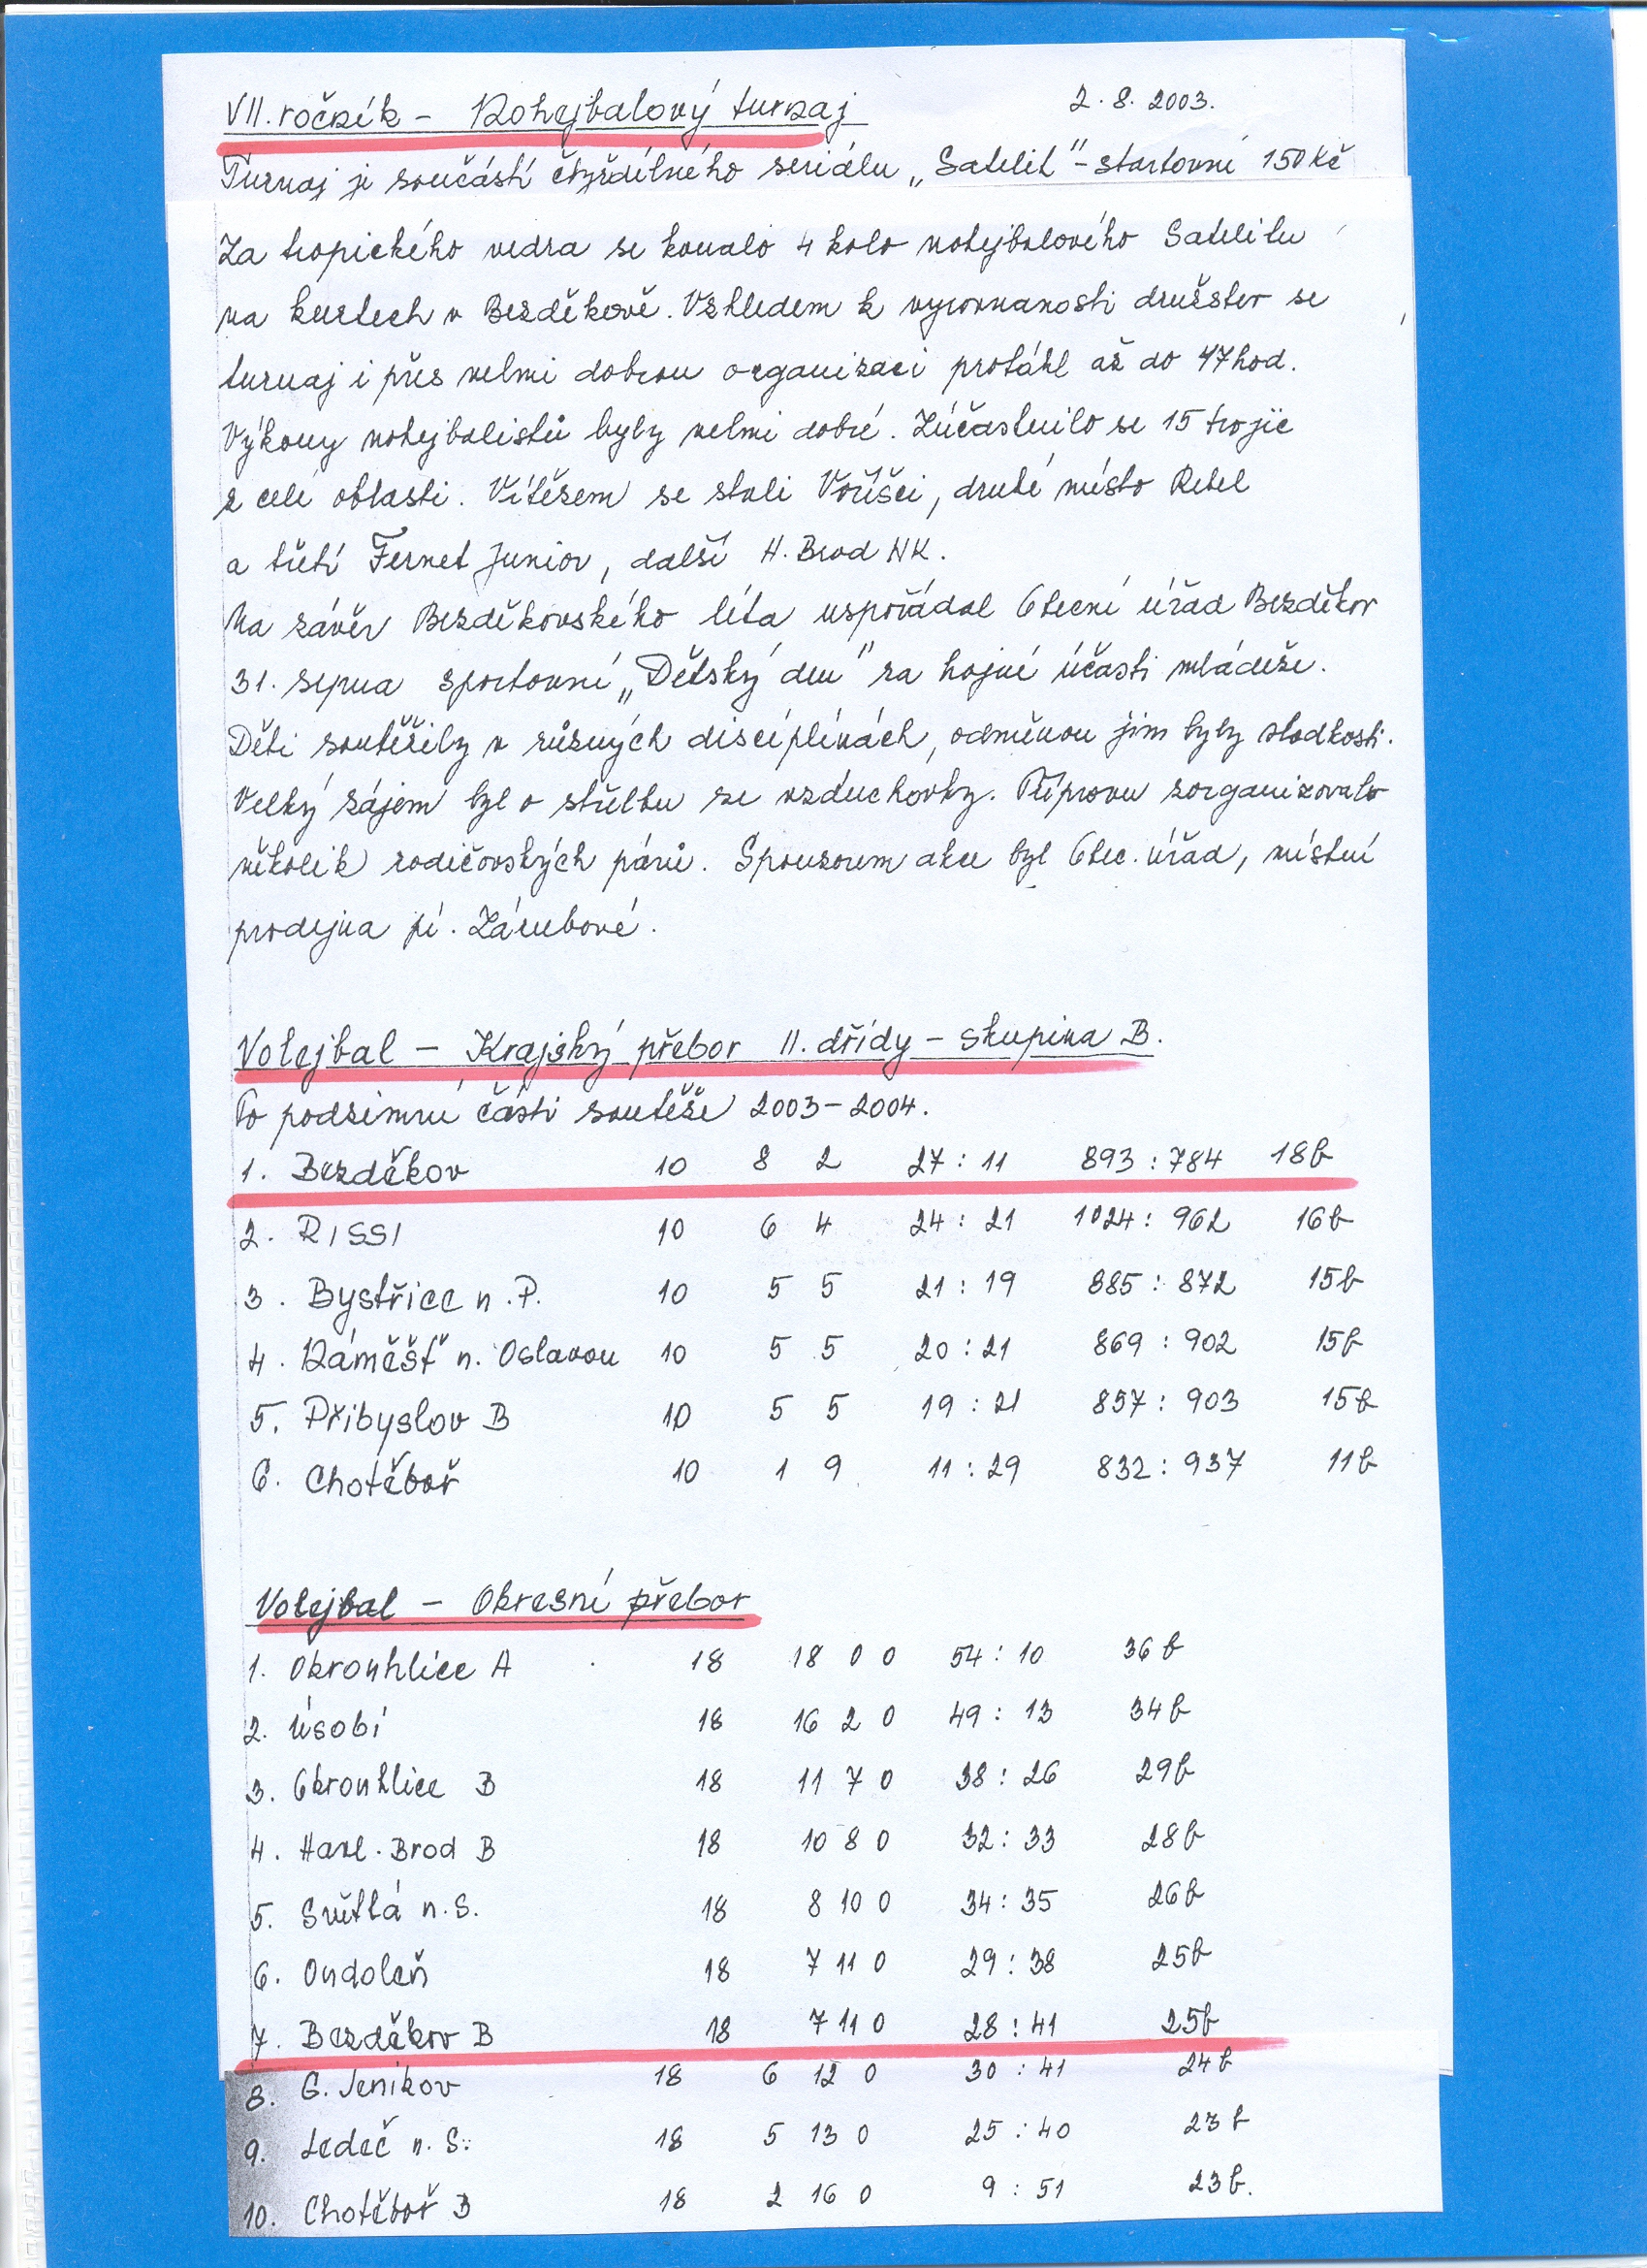 VII. ročník - Nohejbalový turnaj 2. 8. 2003.
Turnaj je součástí čtyřdílného seriálu „Satelit" - startovní 150 Kč
Za tropického vedra se konalo 4 kolo nohejbalového Satelitu
na kurtech v Bezděkově. Vzhledem k vyrovnanosti družstev se
turnaj i přes velmi dobrou organizaci protáhl až do 17 hod.
Výkony nohejbalistů byly velmi dobré. Zúčastnilo se 15 trojic
z celé oblasti. Vítězem se stali Voříšci, druhé místo Rebel
a třetí Fernet Junior, další H. Brod NK.
Na závěr Bezděkovského léta uspořádal Obecní úřad Bezděkov
31. srpna sportovní „Dětský den" za hojné účasti mládeže.
Děti soutěžily v různých disciplínách, odměnou jim byly sladkosti.
Velký zájem byl o střelbu ze vzduchovky. Přípravu zorganizovalo
několik rodičovských párů. Sponzorem akce byl Obec. úřad, místní
prodejna pí. Zárubové.
Volejbal - Krajský přebor II. dřídy - skupina B.
Po podzimní části soutěže 2003-2004.
1. Bezděkov 10 8 2 27 : 11 893 : 784 18b
2. RISSI 10 6 4 24 : 21 1024 : 962 16b
3. Bystřice n. P. 10 5 5 21 : 19 885 : 872 15b
4. Náměšť n. Oslavou 10 5 5 20 : 21 869 : 902 15b
5. Přibyslov B 10 5 5 19 : 21 857 : 903 15b
6. Chotěboř 10 1 9 11 : 29 832 : 937 11b
Volejbal - Okresní přebor
1. Okrouhlice A 18 18 0 0 54 : 10 36b
2. Úsobí 18 16 2 0 49 : 13 34b
3. Okrouhlice B 18 11 7 0 38 : 26 29b
4. Havl. Brod B 18 10 8 0 32 : 33 28b
5. Světlá n. S. 18 8 10 0 34 : 35 26b
6. Ondoleň 18 7 11 0 29 : 38 25b
7. Bezděkov B 18 7 11 0 28 : 41 25b
8. G. Jeníkov 18 6 12 0 30 : 41 24b
9. Ledeč n. S. 18 5 13 0 25 : 40 23b
10. Chotěboř B 18 2 16 0 9 : 51 23b.